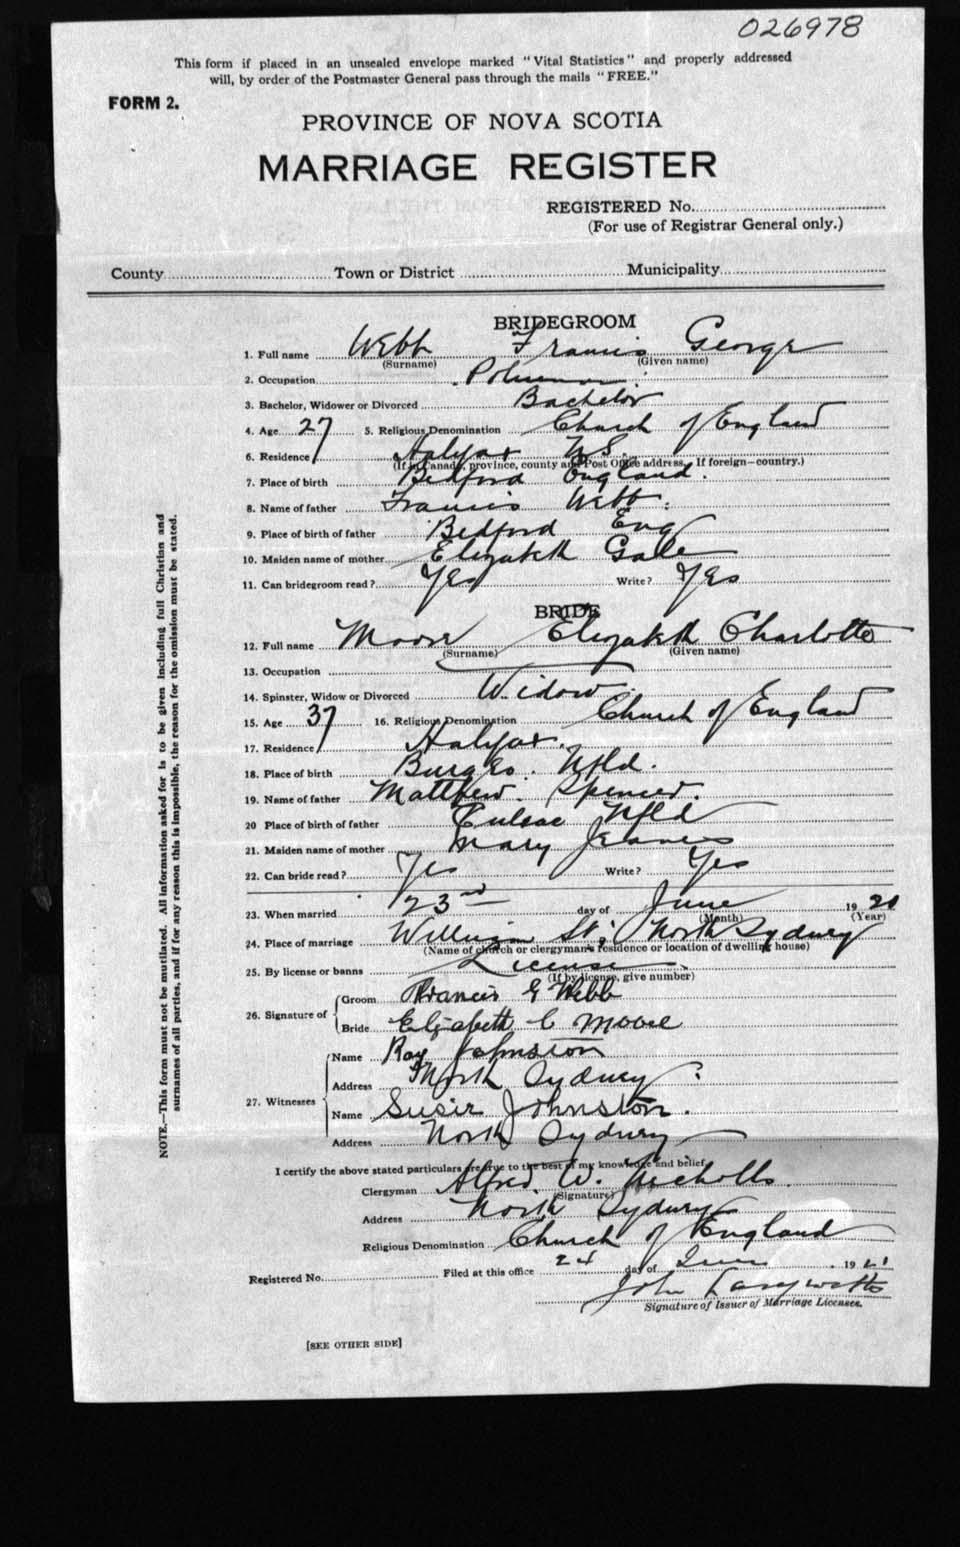 026978
This form if placed in an unsealed envelope marked "Vital Statistics" and properly addressed
will, by order of the Postmaster General pass through the mails "FREE."
FORM 2.
PROVINCE OF NOVA SCOTIA
MARRIAGE REGISTER
REGISTERED No.
(For use of Registrar General only.)
County Town or District Municipality
BRIDEGROOM
1. Full name Webb Francis George
(Surname) (Given name)
2. Occupation Policeman
3. Bachelor, Widower or Divorced Bachelor
4. Age 27 5. Religious Denomination Church of England
6. Residence Halifax N.S.
(If in Canada, province, county and Post Office address. If foreign—country.)
7. Place of birth Bedford England.
8. Name of father Francis Webb.
9. Place of birth of father Bedford Eng
10. Maiden name of mother Elizabeth Gale
11. Can bridegroom read? Yes Write? Yes
BRIDE
12. Full name Moore Elizabeth Charlotte
(Surname) (Given name)
13. Occupation
14. Spinster, Widow or Divorced Widow
15. Age 37 16. Religious Denomination Church of England
17. Residence Halifax.
18. Place of birth Burgeo. Nfld.
19. Name of father Matthew Spencer.
20 Place of birth of father Nfld
21. Maiden name of mother Mary
22. Can bride read? Yes Write? Yes
23. When married 23rd day of June 19
(Month) (Year)
24. Place of marriage William St; North Sydney
(Name of church or clergyman's residence or location of dwelling house)
25. By license or banns License
(If by license, give number)
26. Signature of
Groom Francis G Webb
Bride Elizabeth C Moore
27. Witnesses
Name Roy Johnston
Address North Sydney
Name Susie Johnston.
Address North Sydney
I certify the above stated particulars are true to the best of my knowledge and belief.
Clergyman Alfred. W. Nicholls.
(Signature)
Address North Sydney
Religious Denomination Church of England
Registered No. Filed at this office 24 day of June 1921
John
Signature of Issuer of Marriage Licenses.
[SEE OTHER SIDE]
NOTE.—This form must not be mutilated. All information asked for is to be given including full Christian and
surnames of all parties, and if for any reason this is impossible, the reason for the omission must be stated.